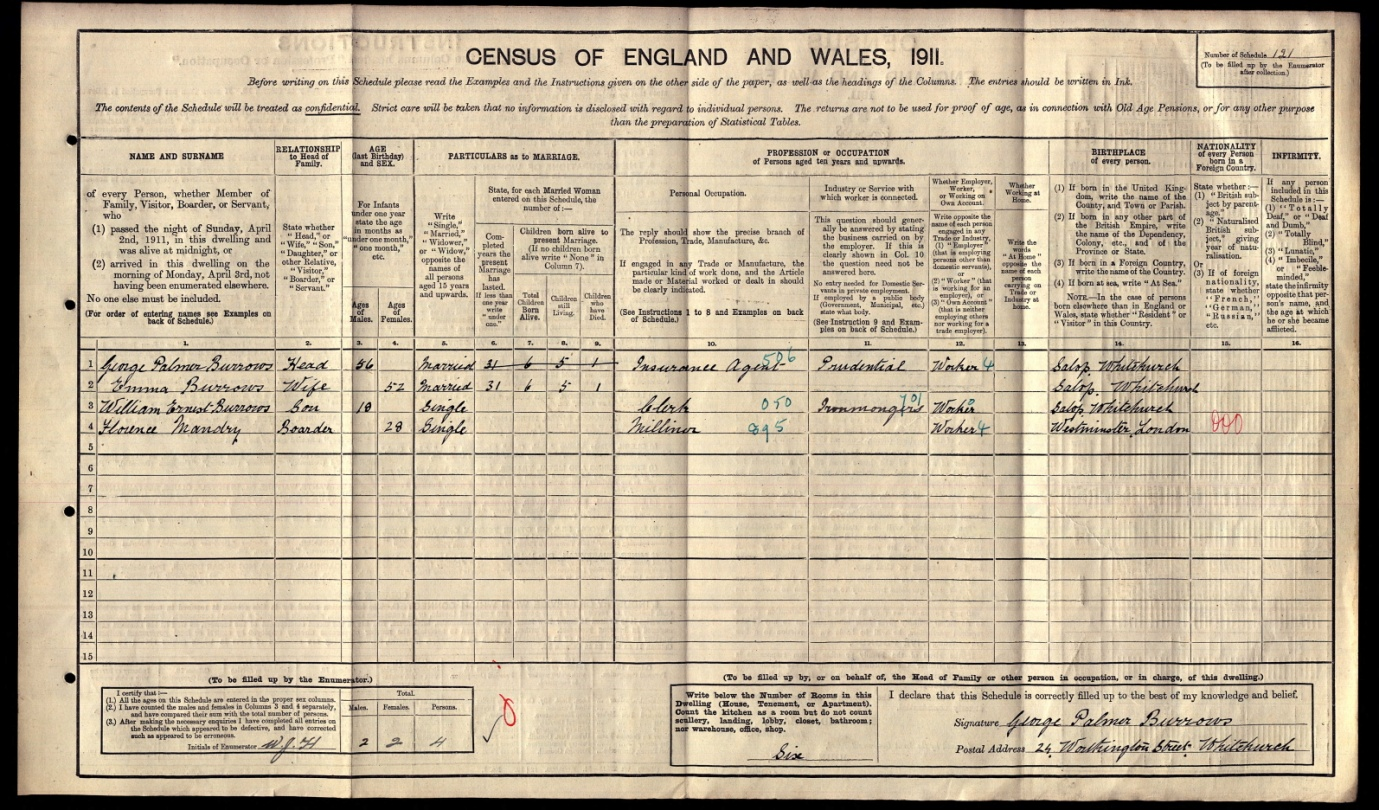 CENSUS OF ENGLAND AND WALES, 1911.
Number of Schedule 121
(To be filled up by the Enumerator
after collection.)
Before writing on this Schedule please read the Examples and the Instructions given on the other side of the paper, as well as the headings of the Columns. The entries should be written in Ink.
The contents of the Schedule will be treated as confidential. Strict care will be taken that no information is disclosed with regard to individual persons. The returns are not to be used for proof of age, as in connection with Old Age Pensions, or for any other purpose
than the preparation of Statistical Tables.
NAME AND SURNAME
of every Person, whether Member of
Family, Visitor, Boarder, or Servant,
who
(1) passed the night of Sunday, April
2nd, 1911, in this dwelling and
was alive at midnight, or
(2) arrived in this dwelling on the
morning of Monday, April 3rd, not
having been enumerated elsewhere.
No one else must be included.
(For order of entering names see Examples on
back of Schedule.)
RELATIONSHIP
to Head of
Family.
State whether
"Head," or
"Wife," "Son,"
"Daughter," or
other Relative,
"Visitor,"
"Boarder," or
"Servant."
AGE
(last Birthday)
and SEX.
For Infants
under one year
state the age
in months as
"under one month,"
"one month,"
etc.
Ages
of
Males.
Ages
of
Females.
PARTICULARS as to MARRIAGE.
Write
"Single,"
"Married,"
"Widower,"
or "Widow,"
opposite the
names of
all persons
aged 15 years
and upwards.
State, for each Married Woman
entered on this Schedule, the
number of:—
Com-
pleted
years the
present
Marriage
has
lasted.
If less
than one
year
write
"under
one."
Children born alive to
present Marriage.
(If no children born
alive write "None" in
Column 7).
Total
Children
Born
Alive.
Children
still
Living.
Children
who
have
Died.
PROFESSION or OCCUPATION
of Persons aged ten years and upwards.
Personal Occupation.
The reply should show the precise branch of
Profession, Trade, Manufacture, &c.
If engaged in any Trade or Manufacture, the
particular kind of work done, and the Article
made or Material worked or dealt in should
be clearly indicated.
(See Instructions 1 to 8 and Examples on back
of Schedule.)
Industry or Service with
which worker is connected.
This question should gener-
ally be answered by stating
the business carried on by
the employer. If this is
clearly shown in Col. 10
the question need not be
answered here.
No entry needed for Domestic Ser-
vants in private employment.
If employed by a public body
(Government, Municipal, etc.)
state what body.
(See Instruction 9 and Exam-
ples on back of Schedule.)
Whether Employer,
Worker,
or Working on
Own Account.
Write opposite
the name of each person
engaged in any
Trade or Industry,
(1) "Employer"
(that is employing
persons other than
domestic servants),
or
(2) "Worker" (that
is working for an
employer), or
(3) "Own Account"
(that is neither
employing others
nor working for a
trade employer).
Whether
Working at
Home.
Write the
words
"At Home"
opposite the
name of each
person
carrying on
Trade or
Industry at
home.
BIRTHPLACE
of every person.
(1) If born in the United King-
dom, write the name of the
County, and Town or Parish.
(2) If born in any other part of
the British Empire, write
the name of the Dependency,
Colony, etc., and of the
Province or State.
(3) If born in a Foreign Country,
write the name of the Country.
(4) If born at sea, write "At Sea."
NOTE.—In the case of persons
born elsewhere than in England or
Wales, state whether "Resident" or
"Visitor" in this Country.
NATIONALITY
of every Person
born in a
Foreign Country.
State whether:—
(1) "British sub-
ject by parent-
age,"
(2) "Naturalised
British sub-
ject," giving
year of natu-
ralisation.
Or
(3) If of foreign
nationality,
state whether
"French,"
"German,"
"Russian,"
etc.
INFIRMITY.
If any person
included in this
Schedule is:—
(1) "Totally
Deaf," or "Deaf
and Dumb,"
(2) "Totally
Blind,"
(3) "Lunatic,"
(4) "Imbecile,"
or "Feeble-
minded,"
state the infirmity
opposite that per-
son's name, and
the age at which
he or she became
afflicted.
1. 2. 3. 4. 5. 6. 7. 8. 9. 10. 11. 12. 13. 14. 15. 16.
1 George Palmer Burrows Head 56 Married 31 6 5 1 Insurance Agent 506 Prudential Worker 4 Salop. Whitchurch
2 Emma Burrows Wife 52 Married 31 6 5 1 Salop. Whitchurch
3 William Ernest Burrows Son 18 Single Clerk 050 Ironmongers 701 Worker Salop Whitchurch
4 Florence Mandry Boarder 28 Single Milliner 895 Worker 4 Westminster London 000
5
6
7
8
9
10
11
12
13
14
15
(To be filled up by the Enumerator.)
I certify that:—
(1.) All the ages on this Schedule are entered in the proper sex columns.
(2.) I have counted the males and females in Columns 3 and 4 separately,
and have compared their sum with the total number of persons.
(3.) After making the necessary enquiries I have completed all entries on
the Schedule which appeared to be defective, and have corrected
such as appeared to be erroneous.
Initials of Enumerator W.J.H
Total.
Males. Females. Persons.
2 2 4
(To be filled up by, or on behalf of, the Head of Family or other person in occupation, or in charge, of this dwelling.)
Write below the Number of Rooms in this
Dwelling (House, Tenement, or Apartment).
Count the kitchen as a room but do not count
scullery, landing, lobby, closet, bathroom;
nor warehouse, office, shop.
Six
I declare that this Schedule is correctly filled up to the best of my knowledge and belief.
Signature George Palmer Burrows
Postal Address 24 Worthington Street Whitchurch